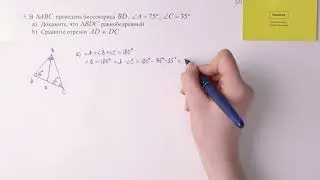 3. В ΔABC проведена биссектриса BD, ∠A = 75°, ∠C = 35°
а) Докажите, что ΔBDC равнобедренный
б) Сравните отрезки AD и DC
а) ∠A + ∠B + ∠C = 180°
∠B = 180° - ∠A - ∠C = 180° - 75° - 35° =
B
A
D
C